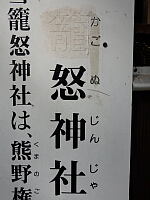 かごぬじんじゃ
籠怒神社
籠怒神社は、熊野権
くまのご